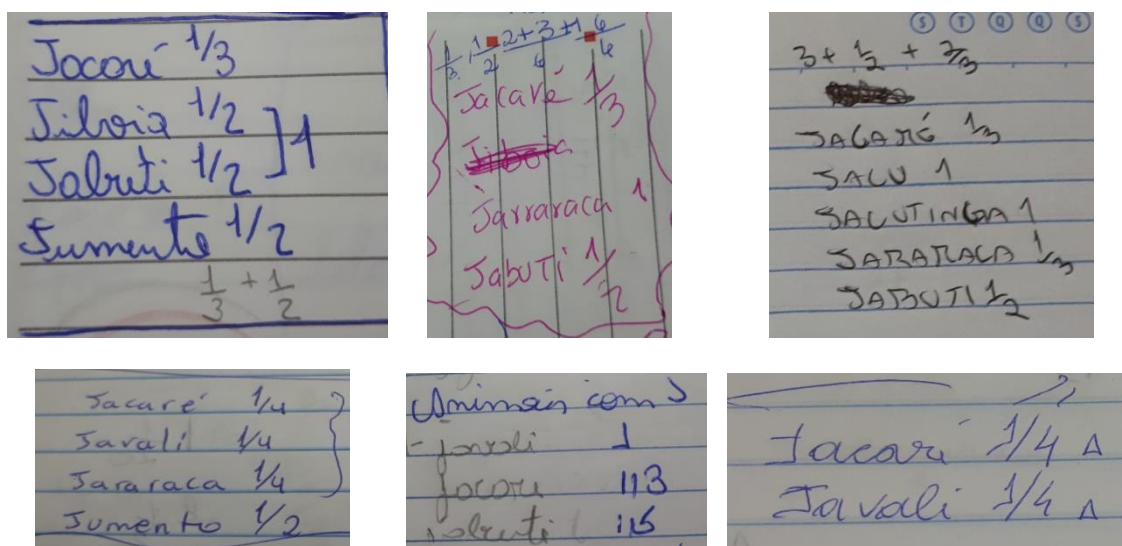 Jacaré 1/3
Jiboia 1/2
Jabuti 1/2 ] 1
Jumento 1/2
1/3 + 1/2
Jacaré 1/3
Jiboia
Jarraraca 1
JabuTi 1/2
S T Q Q S
3 + 1/2 + 2/3
JACARÉ 1/3
JACU 1
JACUTINGA 1
JARARACA 1/3
JABUTI 1/2
Jacaré 1/4
Javali 1/4
Jararaca 1/4
Jumento 1/2
Animais com J
- javali 1
jacaré 1/3
jabuti 1/5
Jacaré 1/4 Δ
Javali 1/4 Δ